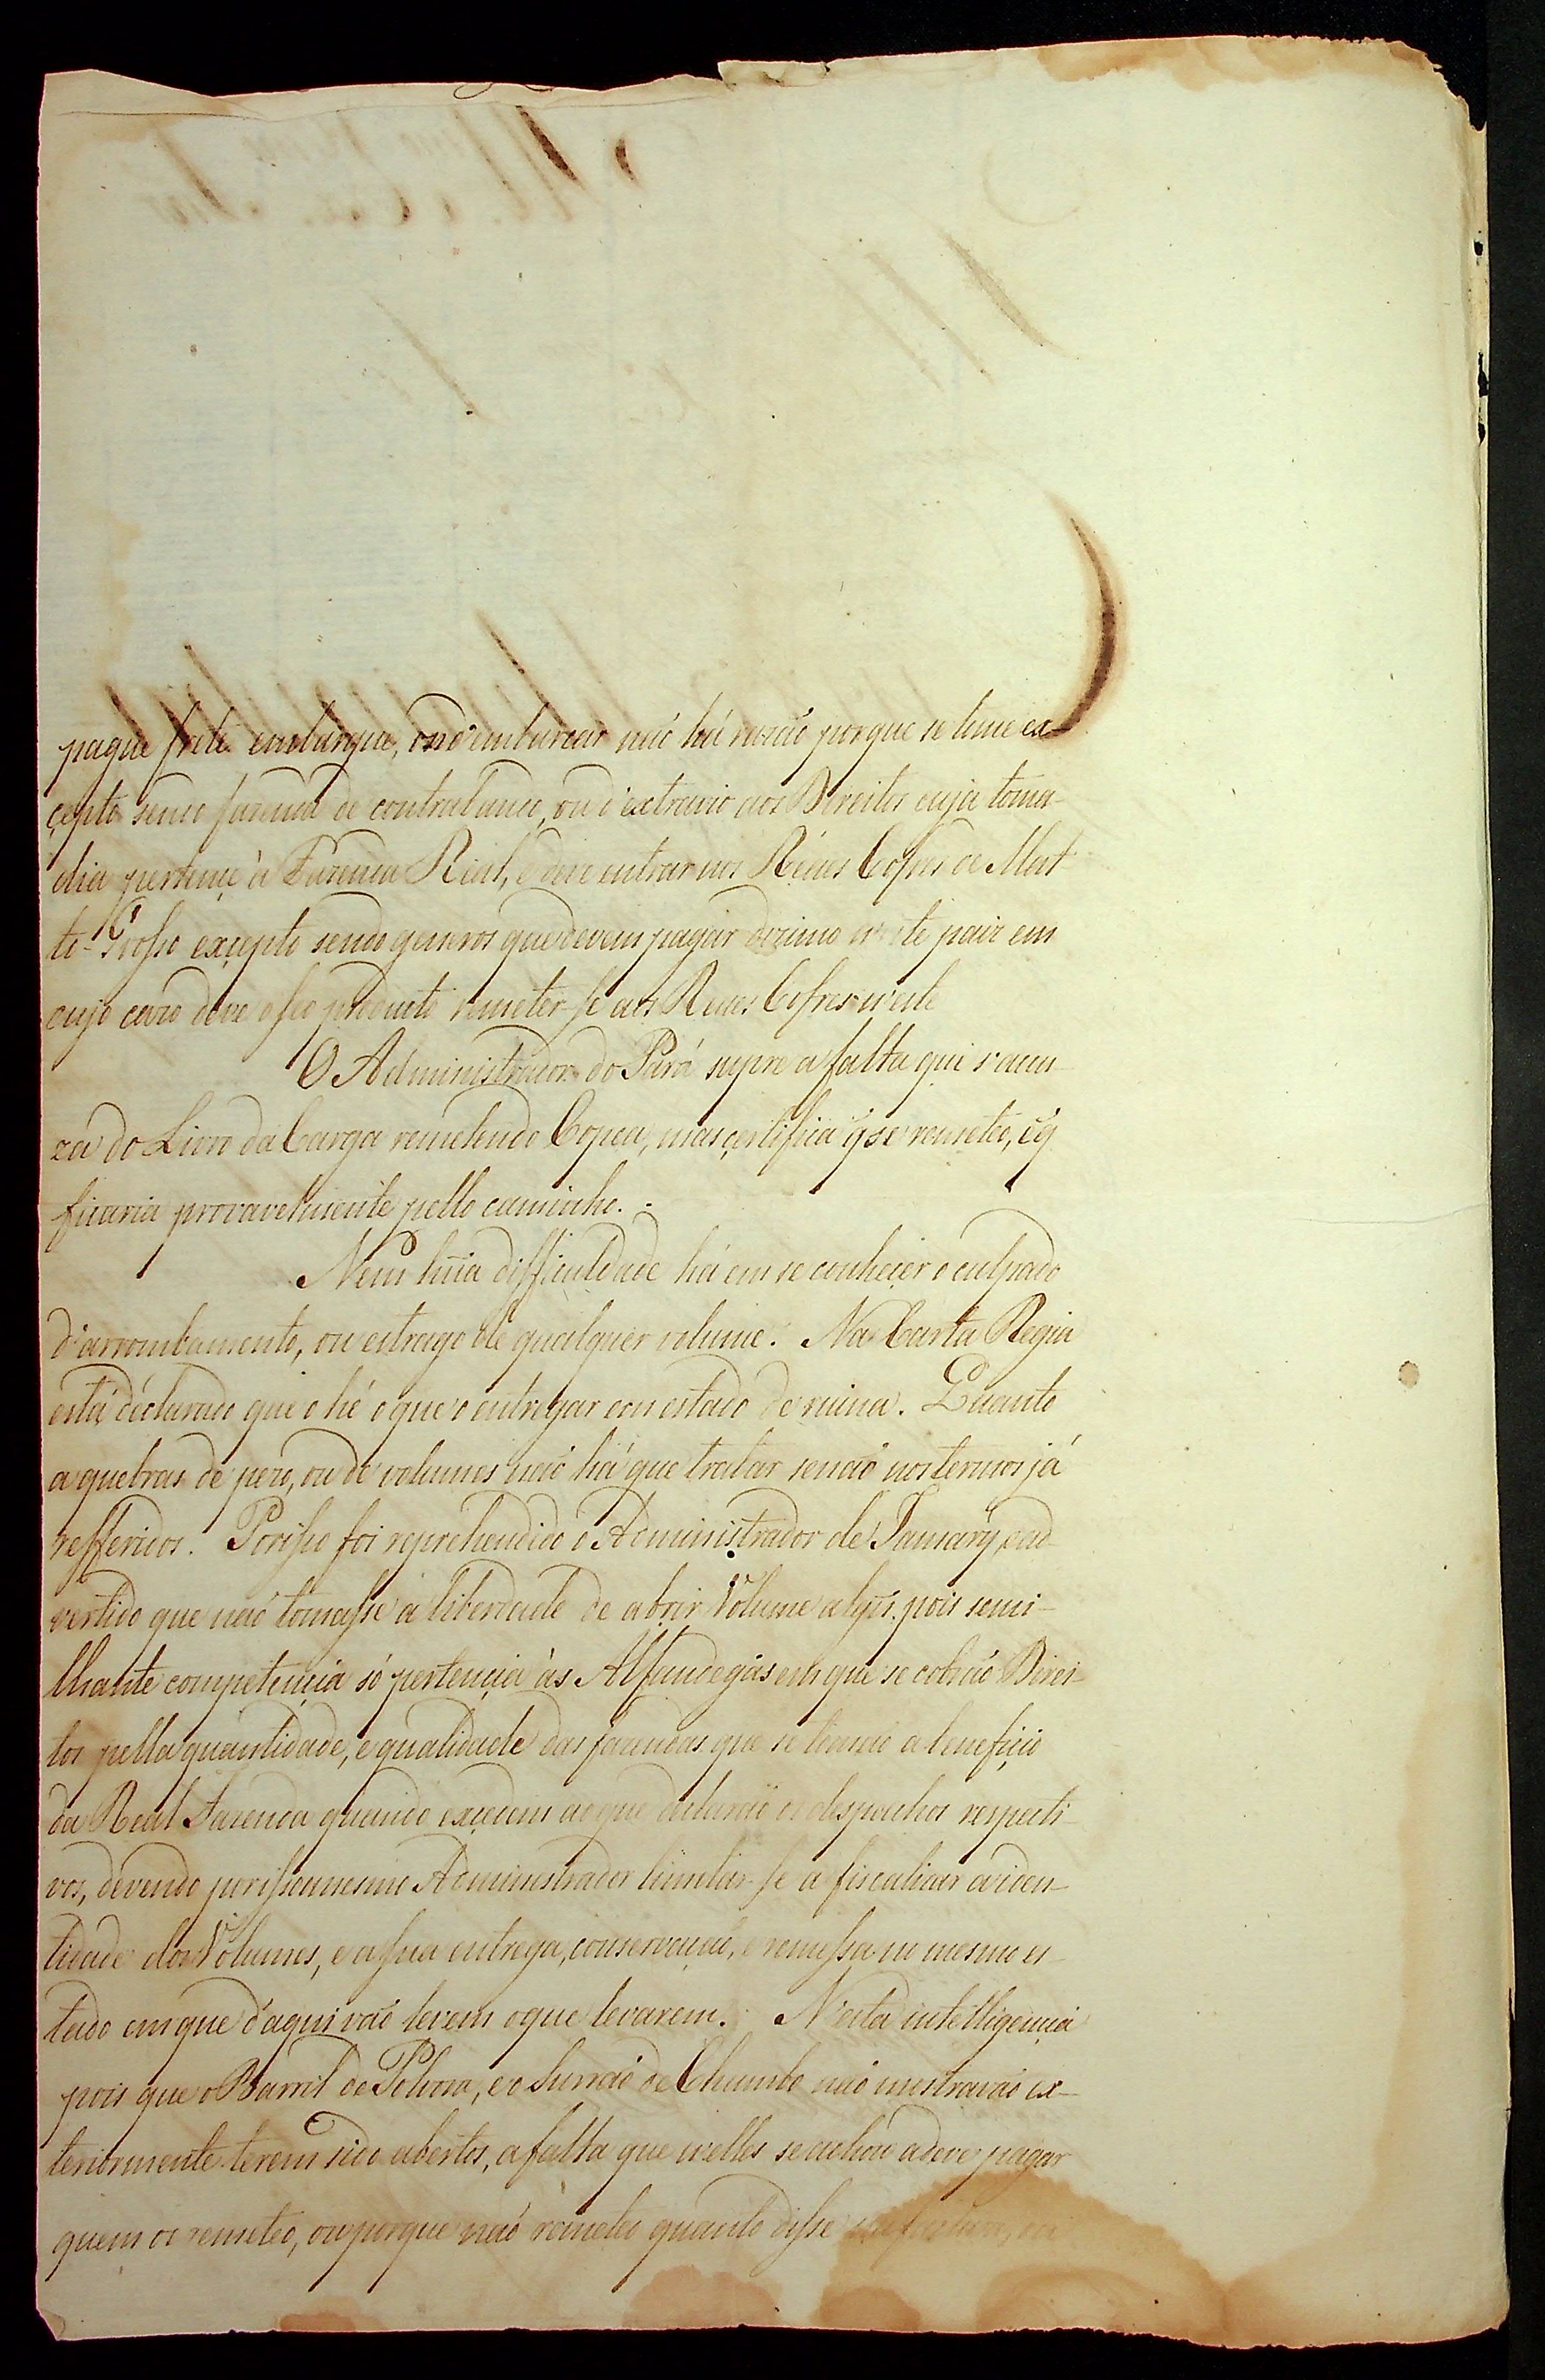 pague frete embarque, ou d'embarcar naõ há razaõ porque se tome ex-
cepto sendo fazenda de contrabando, ou d'extravio aos Direitos cuja toma-
dia pertençe à Fazenda Real, e deve entrar nos Réaes Cofres de Mat-
to-Grosso excepto sendo generos que devem pagar dizimo n'este paiz em
cujo cazo deve o seo producto remeter-se aos Reaes Cofres n'este
O Administrador do Pará supre a falta que s'acu-
za do Livro da Carga remetendo Copea, mas certifica q̃ se remeteo, e q̃
ficaria provavelmente pello caminho.
Nem huã difficuldade há em se conheçer o culpado
d'arrombamento, ou estrago de qualquer volume. Na Carta Regia
está declarado que o hé o que o entregar em estado de ruina. Quanto
a quebras de pezo, ou de volumes naõ há que tratar senaõ nos termos já
refferidos. Porisso foi reprehendido o Administrador de Jamary, e ad-
vertido que naõ tomasse a liberdade de abrir Volume algũ, pois semi-
lhante competençia só pertençia ás Alfandegas em que se cobraõ Direi-
tos pella quantidade, e qualidade das fazendas que se tomaõ a benefiçio
da Real Fazenda quando excedem ao que declaraõ os despachos respecti-
vos, devendo porisso mesmo Administrador limitar-se a fiscalizar a iden-
tidade dos Volumes, e a sua entrega, conservaçaõ, e remessa no mesmo es-
tado em que d'aqui vaõ levem o que levarem. N'esta intelligençia
pois que o Barril de Polvora, e o Surraõ de Chumbo naõ mostravaõ ex-
teriormente terem sido abertos, a falta que n'elles se achou a deve pagar
quem os remeteo, ou porque naõ remeteo quanto disse na factura, ou